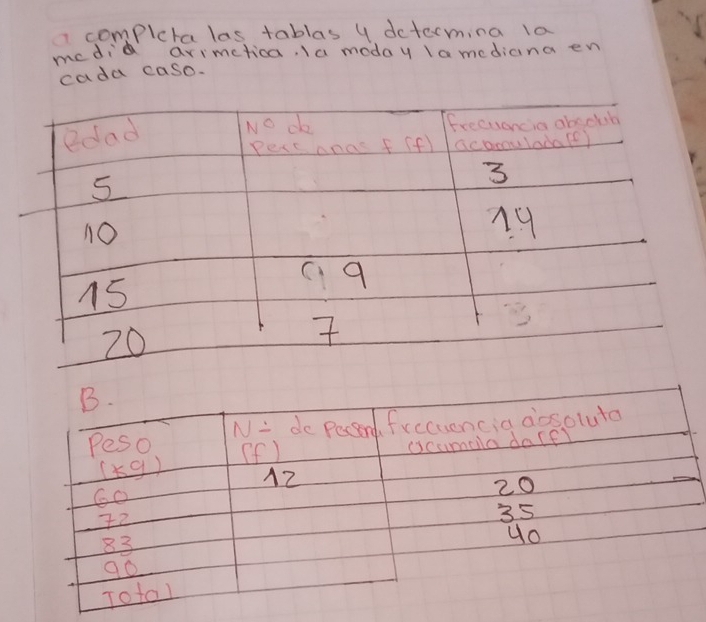 a completa las tablas y determina la
media arimetica. la moda y la mediana en
cada caso.
edad No de personas f (f) frecuencia absoluta acumulada (f)
5 3
10 14
15 9
20 7
B.
Peso (kg) N÷ de Person (f) frecuencia absoluta acumulada (f)
60 12
72 20
83 35
90 40
Total